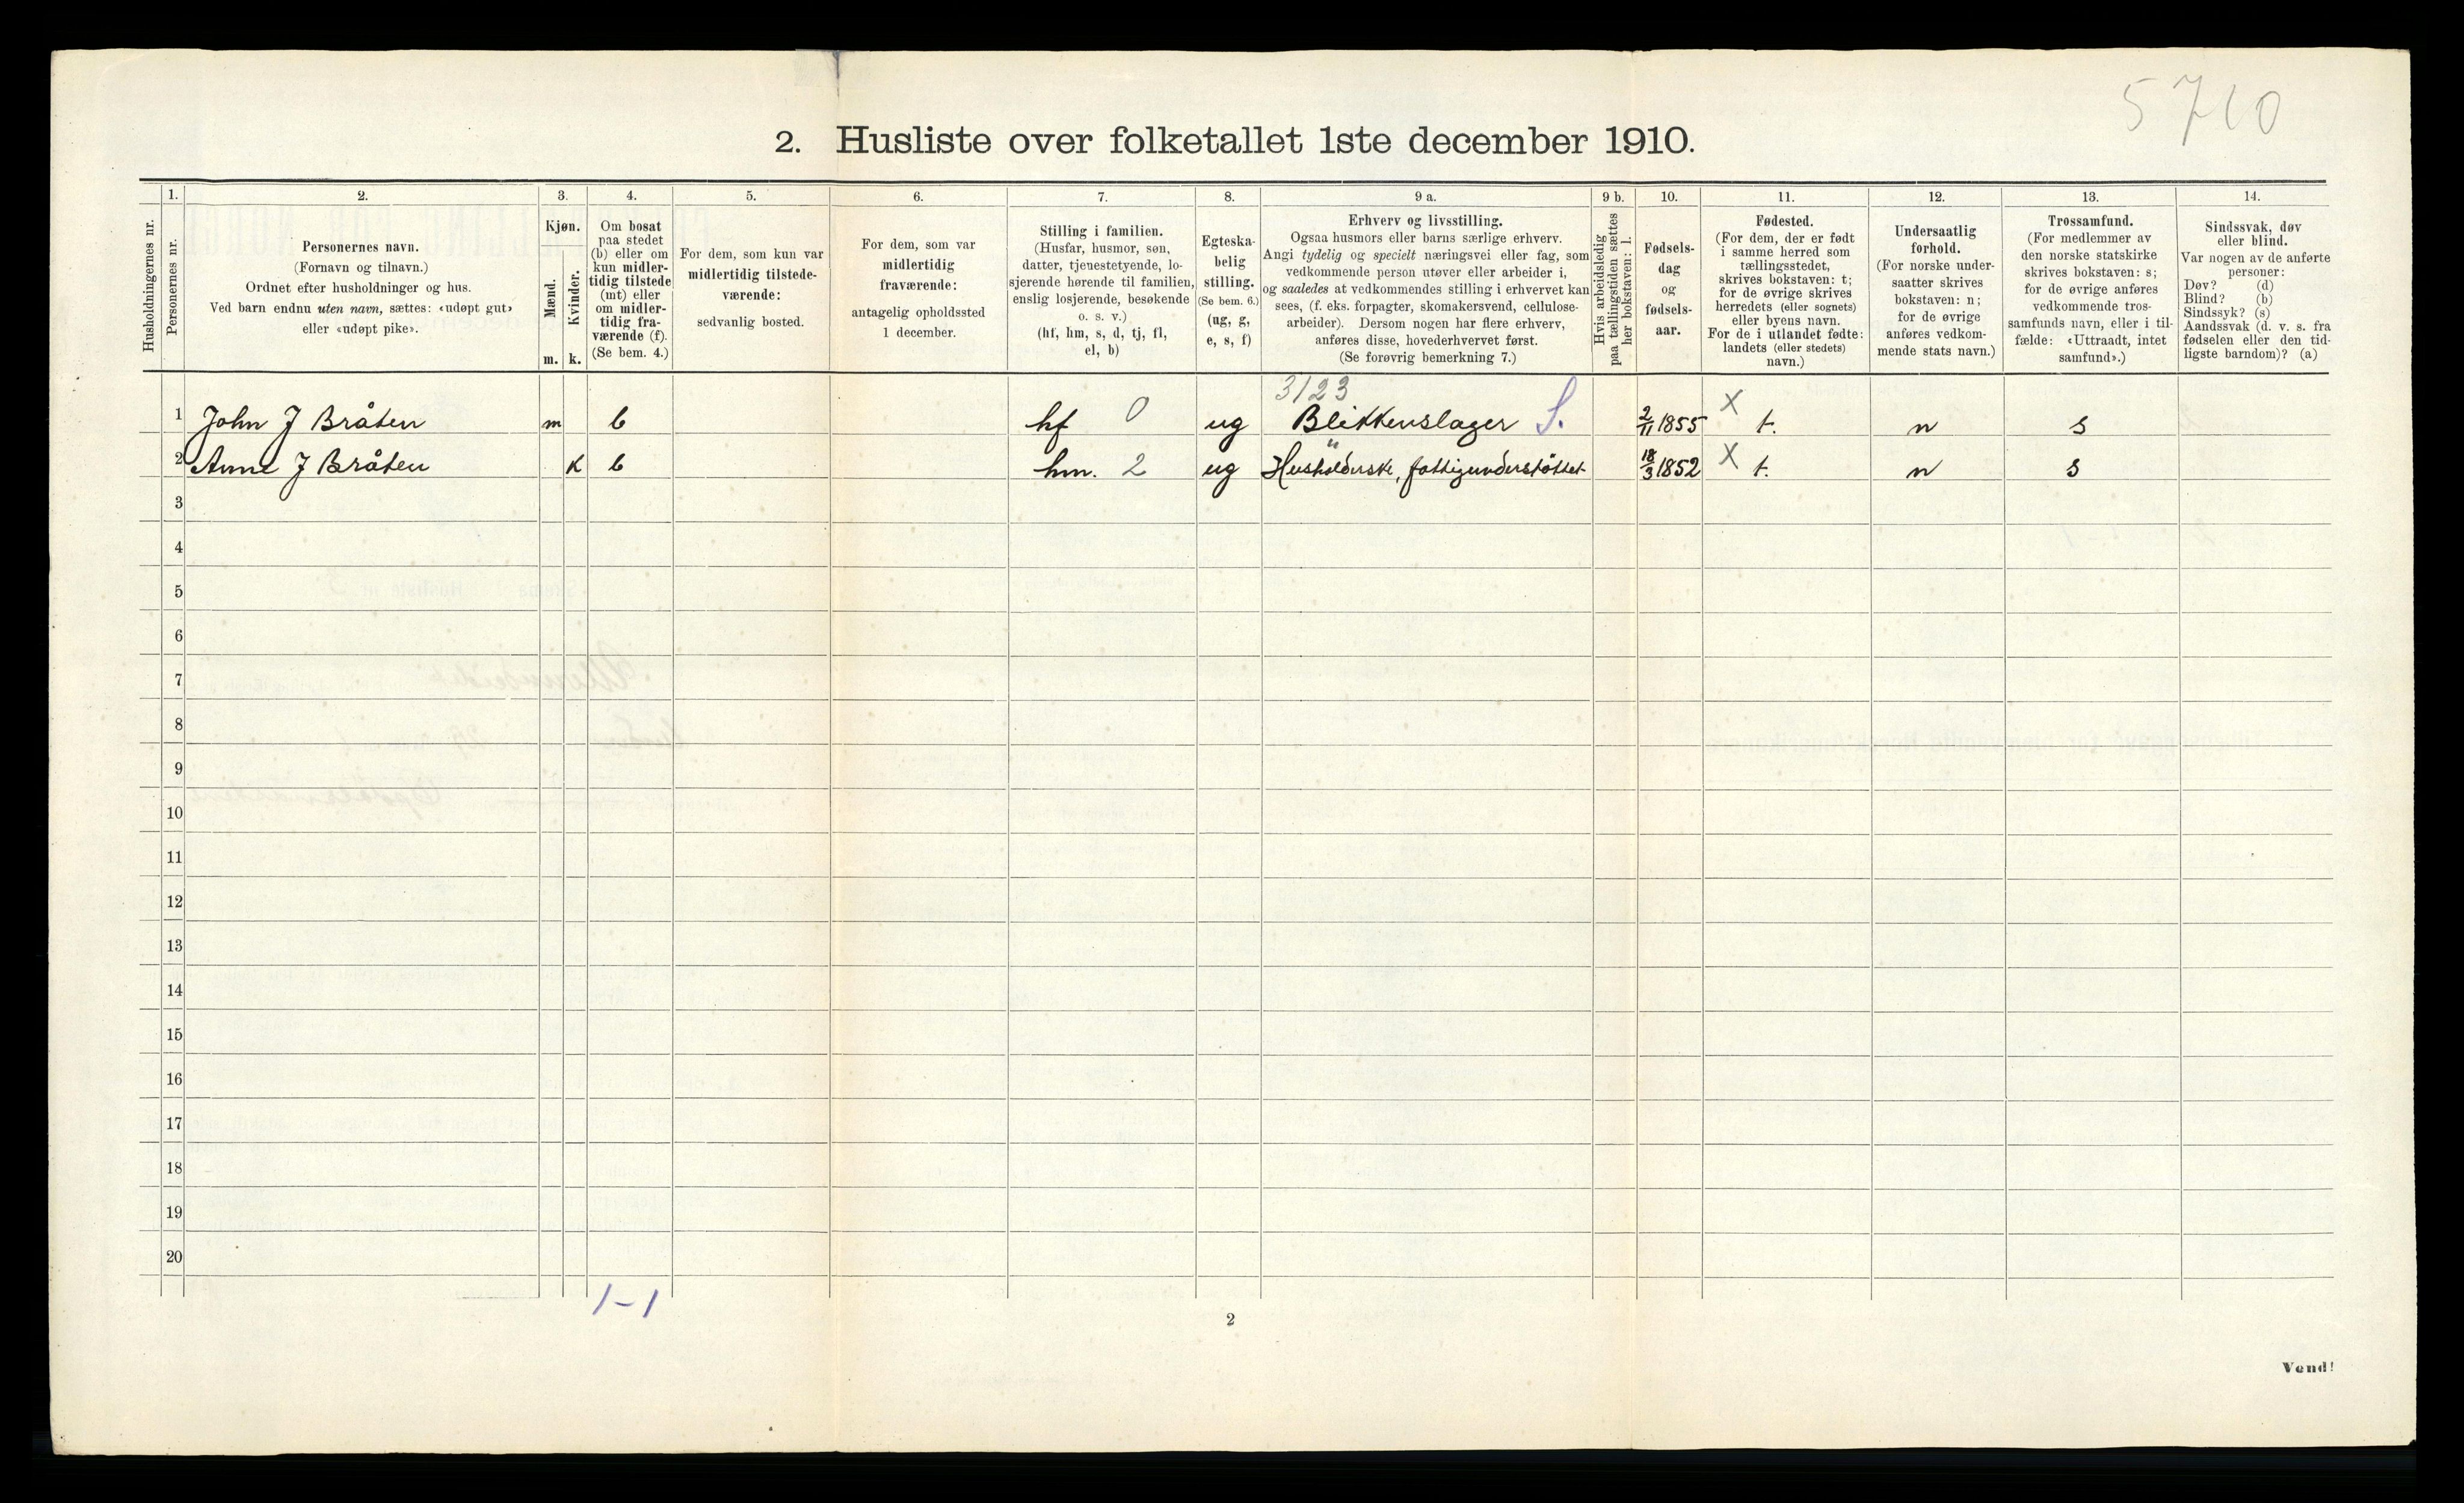 5710
2. Husliste over folketallet 1ste december 1910.
Husholdningernes nr.
1.
Personernes nr.
2.
Personernes navn.
(Fornavn og tilnavn.)
Ordnet efter husholdninger og hus.
Ved barn endnu uten navn, sættes: «udøpt gut»
eller «udøpt pike».
3.
Kjøn.
Mænd.
m.
Kvinder.
k.
4.
Om bosat
paa stedet
(b) eller om
kun midler-
tidig tilstede
(mt) eller
om midler-
tidig fra-
værende (f).
(Se bem. 4.)
5.
For dem, som kun var
midlertidig tilstede-
værende:
sedvanlig bosted.
6.
For dem, som var
midlertidig
fraværende:
antagelig opholdssted
1 december.
7.
Stilling i familien.
(Husfar, husmor, søn,
datter, tjenestetyende, lo-
sjerende hørende til familien,
enslig losjerende, besøkende
o. s. v.)
(hf, hm, s, d, tj, fl,
el, b)
8.
Egteska-
belig
stilling.
(Se bem. 6.)
(ug, g,
e, s, f)
9 a.
Erhverv og livsstilling.
Ogsaa husmors eller barns særlige erhverv.
Angi tydelig og specielt næringsvei eller fag, som
vedkommende person utøver eller arbeider i,
og saaledes at vedkommendes stilling i erhvervet kan
sees, (f. eks. forpagter, skomakersvend, cellulose-
arbeider). Dersom nogen har flere erhverv,
anføres disse, hovederhvervet først.
(Se forøvrig bemerkning 7.)
9 b.
Hvis arbeidsledig
paa tællingstiden sættes
her bokstaven: l.
10.
Fødsels-
dag
og
fødsels-
aar.
11.
Fødested.
(For dem, der er født
i samme herred som
tællingsstedet,
skrives bokstaven: t;
for de øvrige skrives
herredets (eller sognets)
eller byens navn.
For de i utlandet fødte:
landets (eller stedets)
navn.)
12.
Undersaatlig
forhold.
(For norske under-
saatter skrives
bokstaven: n;
for de øvrige
anføres vedkom-
mende stats navn.)
13.
Trossamfund.
(For medlemmer av
den norske statskirke
skrives bokstaven: s;
for de øvrige anføres
vedkommende tros-
samfunds navn, eller i til-
fælde: «Uttraadt, intet
samfund».)
14.
Sindssvak, døv
eller blind.
Var nogen av de anførte
personer:
Døv? (d)
Blind? (b)
Sindssyk? (s)
Aandssvak (d. v. s. fra
fødselen eller den tid-
ligste barndom)? (a)
3123
1 John J Bråten m b hf 0 ug Blikkenslager S. 2/11 1855 X t. n s
2 Anne J Bråten k b hm. 2 ug Husholderske, fattigunderstöttet 18/3 1852 X t. n s
3
4
5
6
7
8
9
10
11
12
13
14
15
16
17
18
19
20
1-1
2
Vend!